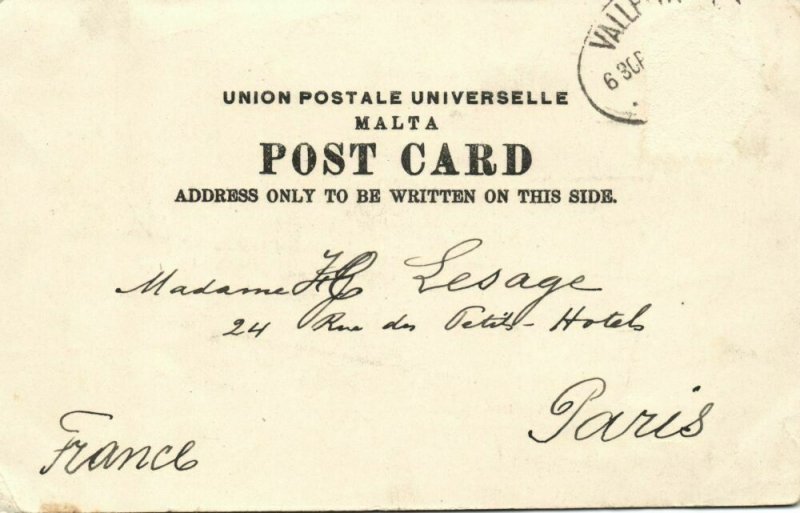 UNION POSTALE UNIVERSELLE
MALTA
POST CARD
ADDRESS ONLY TO BE WRITTEN ON THIS SIDE.
Madame Lesage
24 Rue des Petits-Hotels
Paris
France